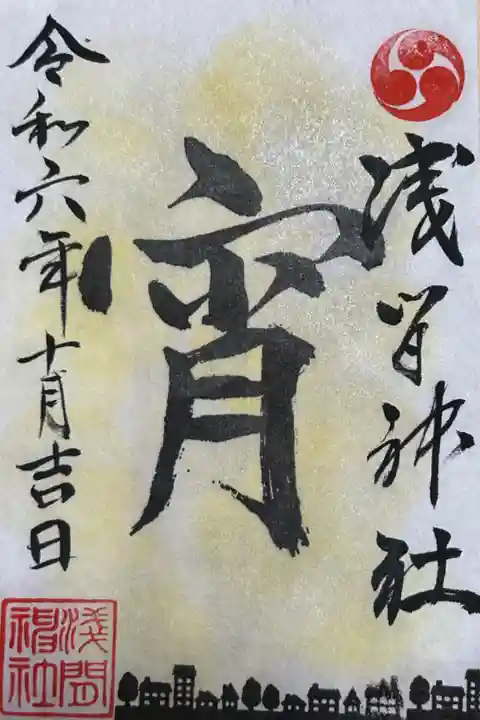 浅間神社
宵
令和六年十月吉日
淺間神社